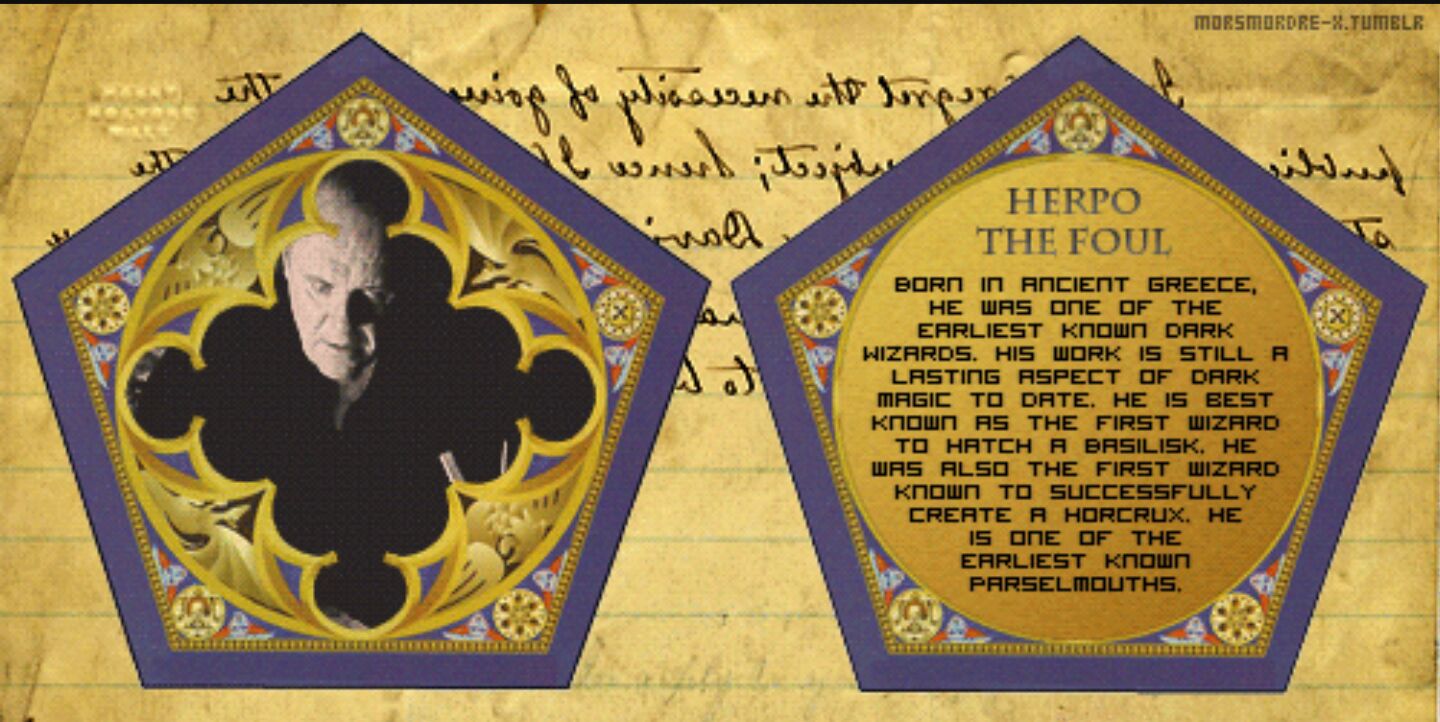 MORSMORDRE-X.TUMBLR
I regret the necessity of going the
public subject; hence I the
at
to
HERPO
THE FOUL
BORN IN ANCIENT GREECE,
HE WAS ONE OF THE
EARLIEST KNOWN DARK
WIZARDS. HIS WORK IS STILL A
LASTING ASPECT OF DARK
MAGIC TO DATE. HE IS BEST
KNOWN AS THE FIRST WIZARD
TO HATCH A BASILISK. HE
WAS ALSO THE FIRST WIZARD
KNOWN TO SUCCESSFULLY
CREATE A HORCRUX. HE
IS ONE OF THE
EARLIEST KNOWN
PARSELMOUTHS.